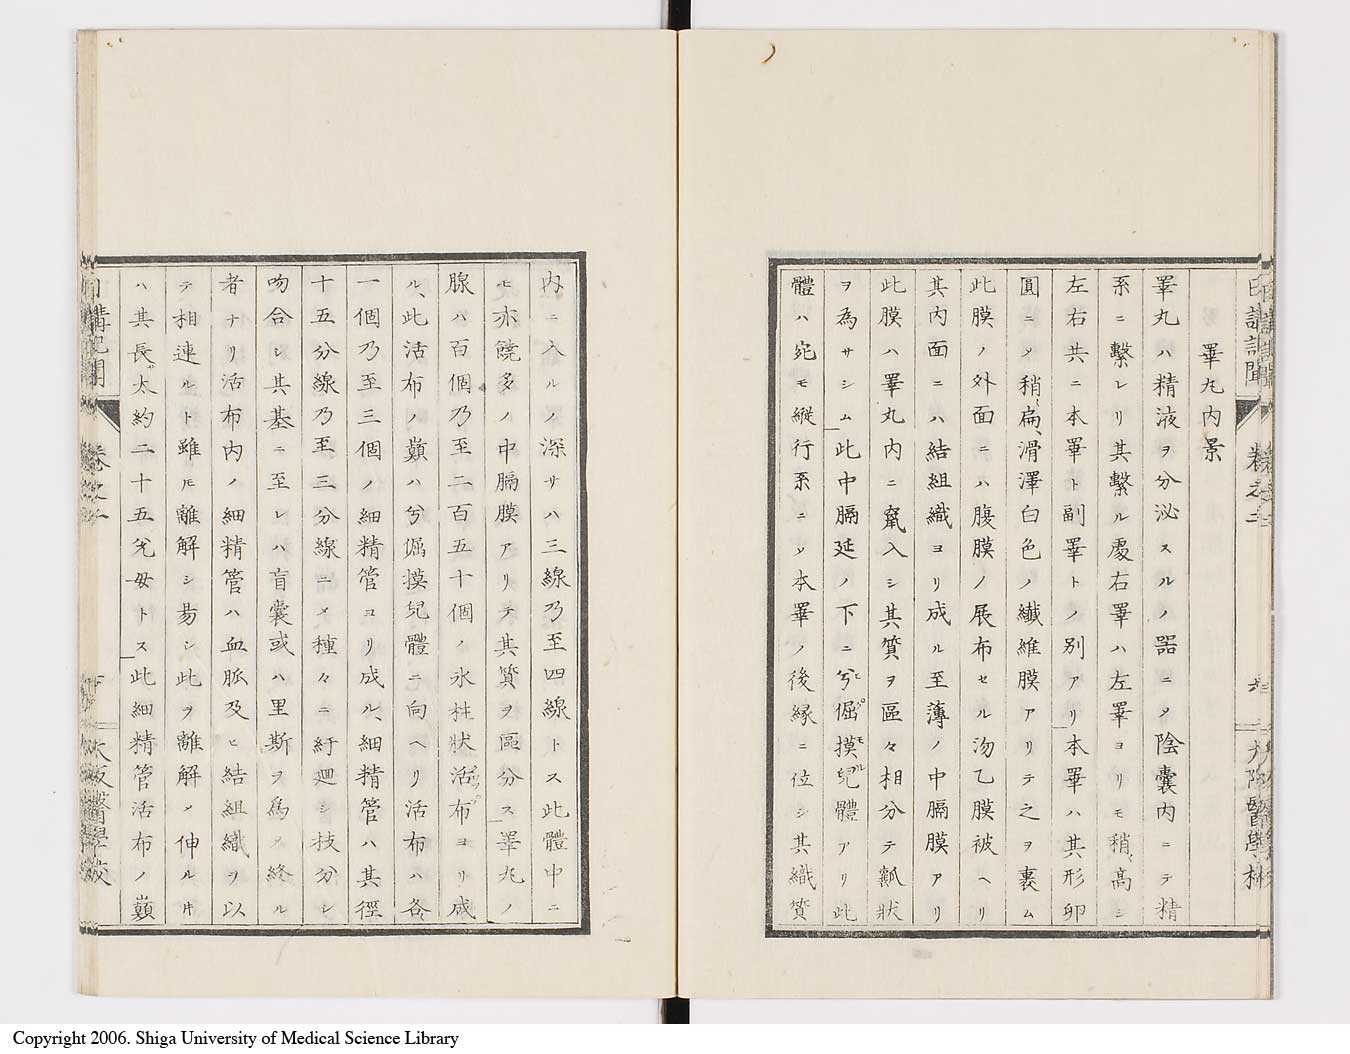 睾丸内景
睾丸ハ精液ヲ分泌スルノ器ニメ陰嚢内ニテ精
系ニ繋レリ其繋ル處右睾ハ左睾ヨリモ稍高シ
左右共ニ本睾ト副睾トノ別アリ本睾ハ其形卵
圓ニメ稍扁滑澤白色ノ纖維膜アリテ之ヲ裹ム
此膜ノ外面ニハ腹膜ノ展布セル汤乙膜被ヘリ
其内面ニハ結組織ヨリ成ル至薄ノ中膈膜アリ
此膜ハ睾丸内ニ竄入シ其質ヲ區々相分テ瓤狀
ヲ為サシム此中膈延ノ下ニ兮倔摸兒體アリ此
體ハ宛モ縱行系ニメ本睾ノ後縁ニ位シ其織質
内ニ入ルノ深サハ三線乃至四線トス此體中ニ
モ亦饒多ノ中膈膜アリテ其質ヲ區分ス睾丸ノ
腺ハ百個乃至二百五十個ノ氷柱狀活布ヨリ成
ル此活布ノ巔ハ兮倔摸兒體ニ向ヘリ活布ハ各
一個乃至三個ノ細精管ヨリ成ル細精管ハ其徑
十五分線乃至三分線ニメ種々ニ紆廻シ枝分シ
吻合シ其基ニ至レハ盲嚢或ハ里斯ヲ為メ終ル
者ナリ活布内ノ細精管ハ血脈及ヒ結組織ヲ以
テ相連ルト雖モ離解シ昜シ此ヲ離解メ伸ル片
ハ其長サ大約二十五兊毋トス此細精管活布ノ巔
日講記聞
卷之二
大阪醫學校
Copyright 2006. Shiga University of Medical Science Library